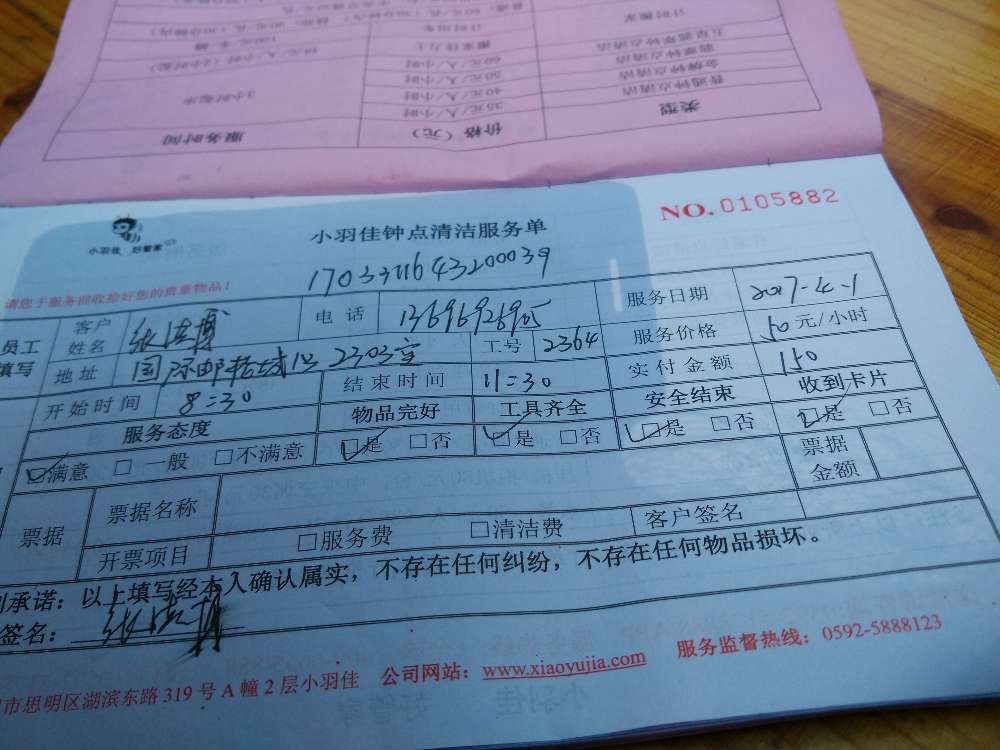 类型 价格（元） 服务时间
普通钟点清洁 35元/人/小时 3小时起半
金牌钟点清洁 40元/人/小时
翡翠钟点清洁 50元/人/小时
五星翡翠钟点清洁 60元/人/小时
计时搬家
小羽佳 好管家
小羽佳钟点清洁服务单
NO.0105882
1703311643200039
请您于服务前收拾好您的贵重物品！
员工
填写
客户
姓名 电话 服务日期 2017-4-1
地址 国际邮轮城1号2303室 工号 2364 服务价格 50元/小时
开始时间 8:30 结束时间 11:30 实付金额 150
服务态度 物品完好 工具齐全 安全结束 收到卡片
☑满意 □一般 □不满意 ☑是 □否 ☑是 □否 ☑是 □否 ☑是 □否
票据 票据名称 票据
金额
开票项目 □服务费 □清洁费 客户签名
承诺：以上填写经本人确认属实，不存在任何纠纷，不存在任何物品损坏。
签名：
市思明区湖滨东路319号A幢2层小羽佳 公司网站：www.xiaoyujia.com 服务监督热线：0592-5888123